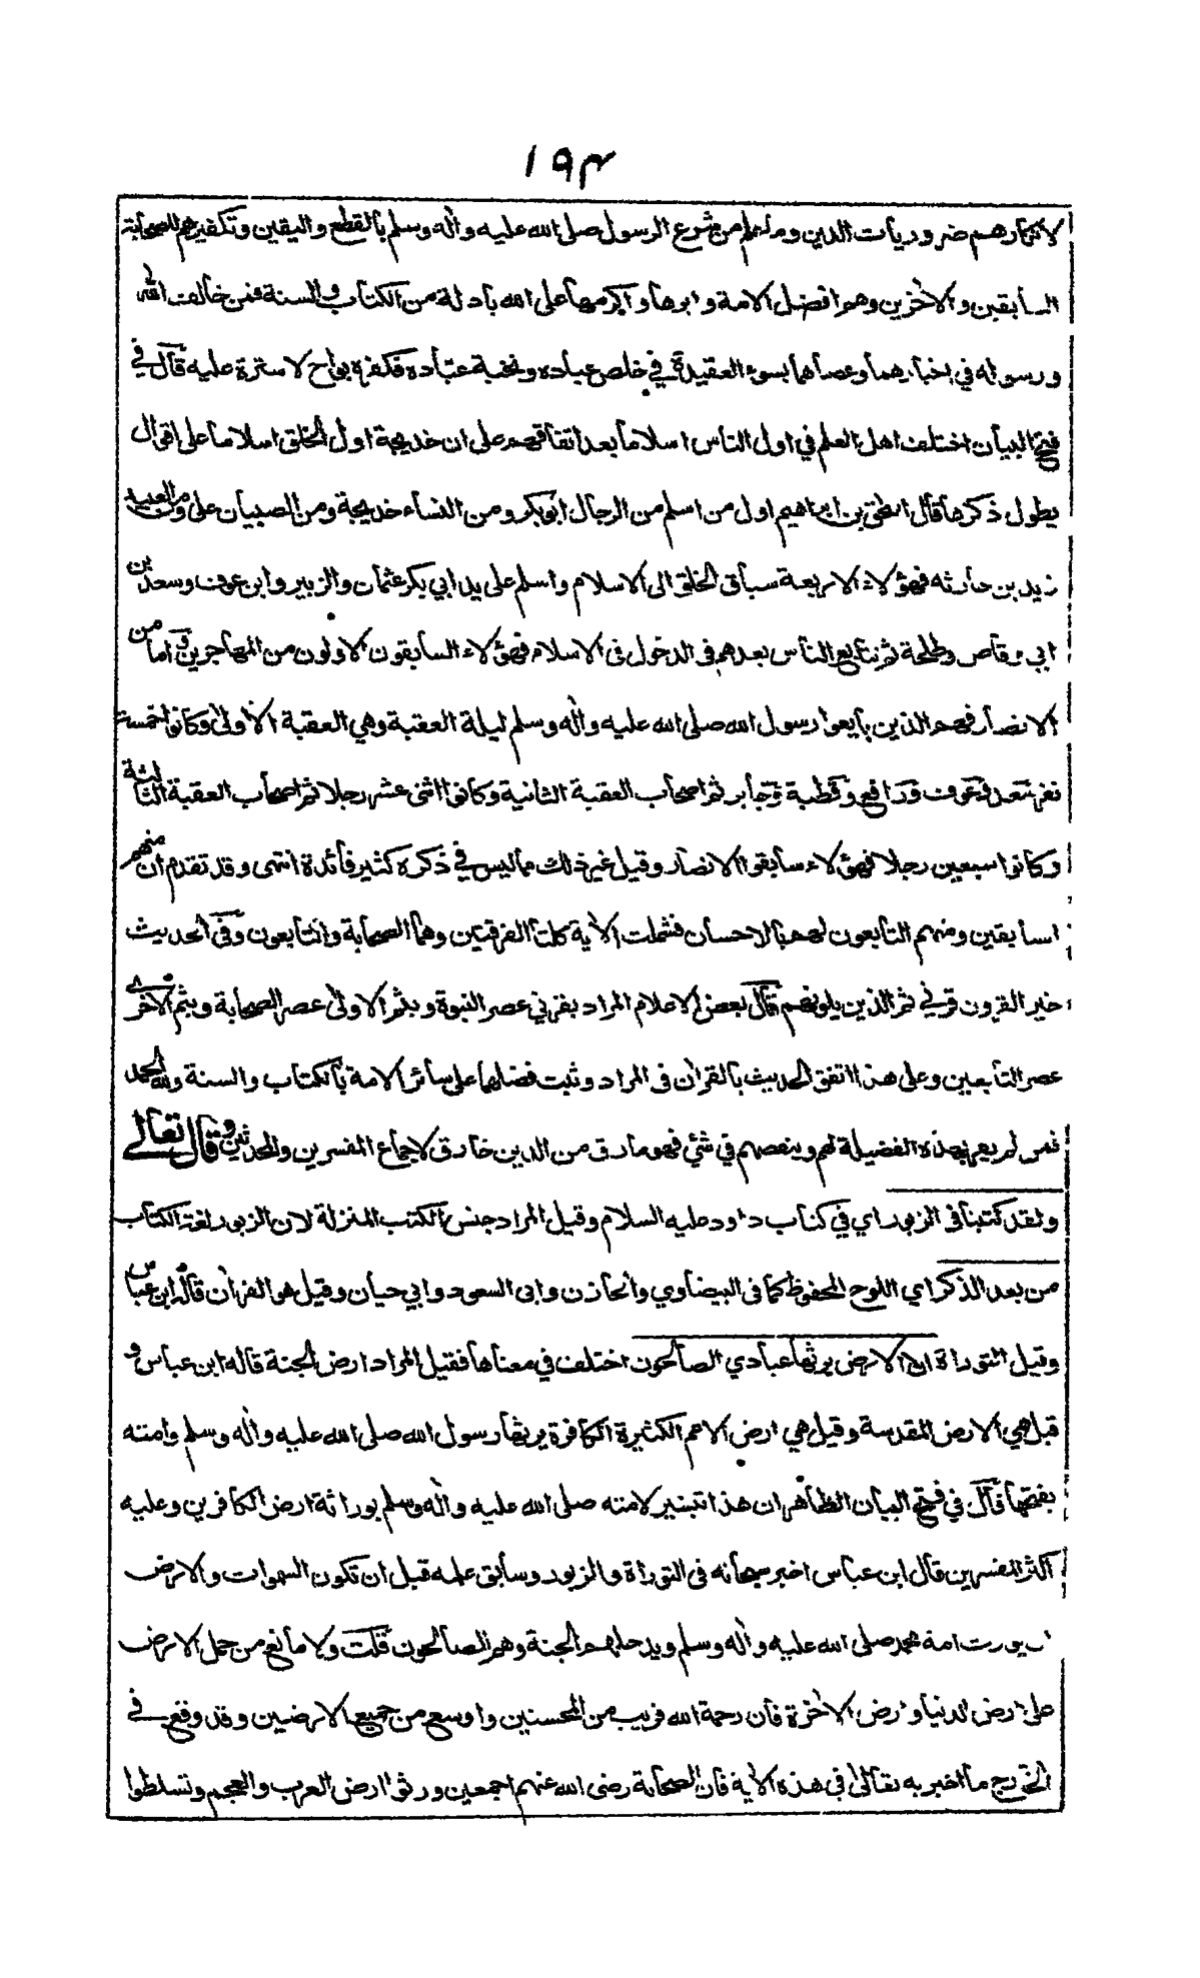 ١٩٣
لانكارهم ضروريات الدين وما علم من شرع الرسول صلى الله عليه وآله وسلم بالقطع واليقين وتكفيرهم للصحابة
السابقين والآخرين وهم افضل الامة وابرها واكرمها على الله بأدلة من الكتاب والسنة فمن خالف الله
ورسوله في اخبارهما وعصاهما بسوء العقيدة في خلص عباده ونخبة عبّاده فكفره بواح لا سترة عليه قال في
فتح البيان اختلف اهل العلم في اول الناس اسلاما بعد اتفاقهم على ان خديجة اول الخلق اسلاما على اقوال
يطول ذكرها قال اسحق بن ابراهيم اول من اسلم من الرجال ابوبكر ومن النساء خديجة ومن الصبيان علي ومن العبيد
زيد بن حارثه فهؤلاء الاربعة سباق الخلق الى الاسلام واسلم على يد ابي بكر عثمان والزبير وابن عوف وسعد بن
ابي وقاص وطلحة ثم تتابع الناس بعدهم في الدخول في الاسلام فهؤلاء السابقون الاولون من المهاجرين واما من
الانصار فهم الذين بايعوا رسول الله صلى الله عليه وآله وسلم ليلة العقبة وهي العقبة الاولى وكانوا خمسة
نفر سعد وعوف ورافع وقطبة وجابر ثم اصحاب العقبة الثانية وكانوا اثنى عشر رجلا ثم اصحاب العقبة الثالثة
وكانوا سبعين رجلا فهؤلاء سابقوا الانصار وقيل غير ذلك مما ليس في ذكره كثير فائدة انتهى وقد تقدم ان منهم
السابقين ومنهم التابعون لهم بالاحسان فشملت الآية كلتا الفرقتين وهما الصحابة والتابعون وفي الحديث
خير القرون قرني ثم الذين يلونهم قال بعض الاعلام المراد بقرني عصر النبوة وبثم الاولى عصر الصحابة وبثم الاخرى
عصر التابعين وعلى هذا اتفق الحديث بالقرآن في المراد وثبت فضلهما على سائر الامة بالكتاب والسنة ولله الحمد
فمن لم يعرف هذه الفضيلة لهم وينقصهم في شئ فهو مارق من الدين خارق لاجماع المفسرين والمحدثين وقال تعالى
ولقد كتبنا في الزبور اي في كتاب داود عليه السلام وقيل المراد جنس الكتب المنزلة لان الزبور لغة الكتاب
من بعد الذكر اي اللوح المحفوظ كما في البيضاوي والخازن وابى السعود وابي حيان وقيل هو القرآن قاله ابن عباس
وقيل التوراة ان الارض يرثها عبادي الصالحون اختلف في معناها فقيل المراد ارض الجنة قاله ابن عباس و
قيل هي الارض المقدسة وقيل هي ارض الامم الكثيرة الكافرة يرثها رسول الله صلى الله عليه وآله وسلم وامته
بفتحها قال في فتح البيان الظاهر ان هذا تبشير لامته صلى الله عليه وآله وسلم بوراثة ارض الكافرين وعليه
اكثر المفسرين قال ابن عباس اخبر سبحانه في التوراة والزبور وسابق علمه قبل ان تكون السموات والارض
ان يورث امة محمد صلى الله عليه وآله وسلم ويدخلهم الجنة وهم الصالحون قلت ولا مانع من حمل الارض
على ارض الدنيا وارض الآخرة فان رحمة الله قريب من المحسنين واوسع من جميع الارضين وقد وقع في
الخارج ما اخبر به تعالى في هذه الآية فان الصحابة رضى الله عنهم اجمعين ورثوا ارض العرب والعجم وتسلطوا